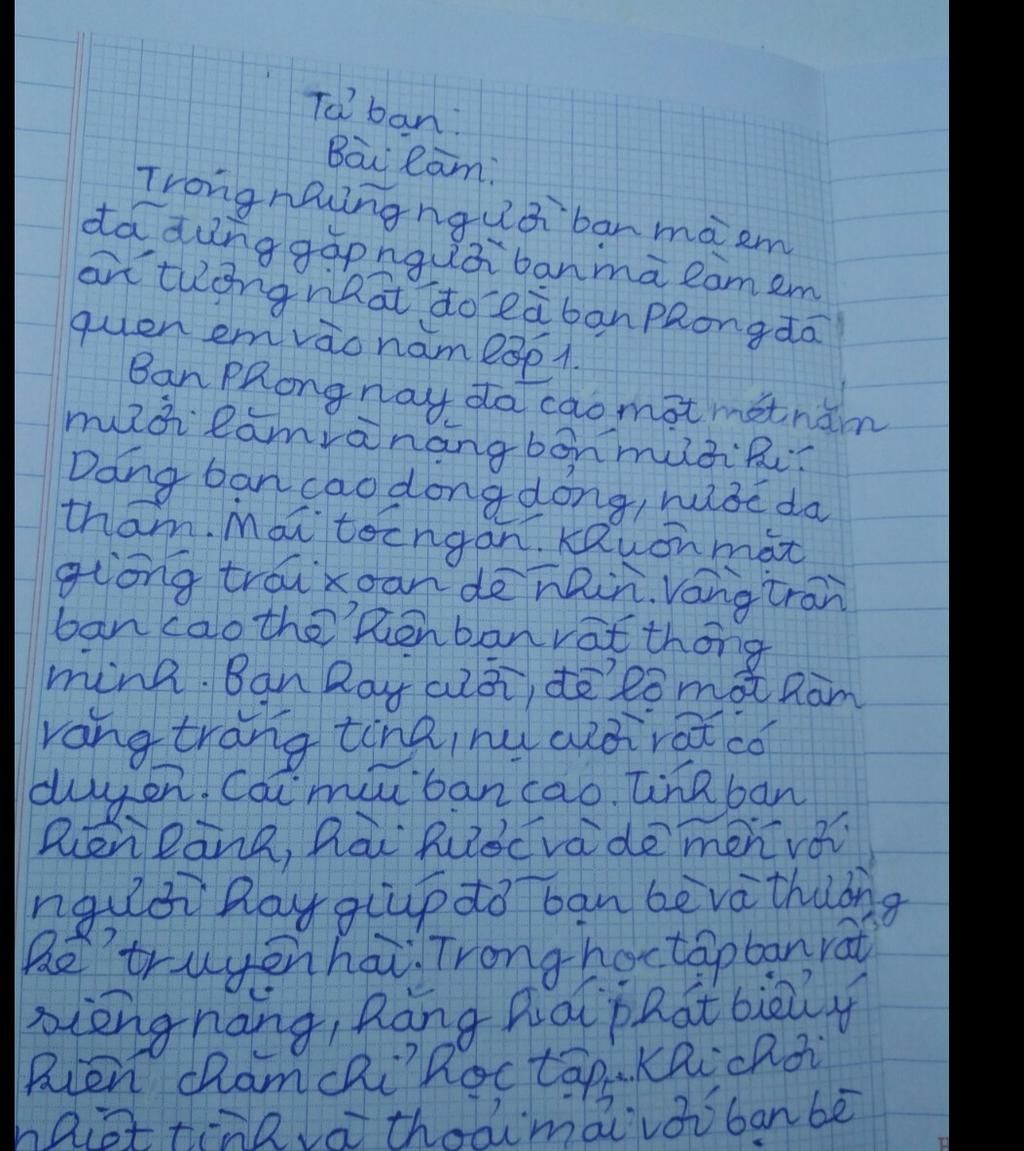 Tả bạn:
Bài làm:
Trong những người bạn mà em
đã đừng gặp người bạn mà làm em
ấn tượng nhất đó là bạn Phong đã
quen em vào năm lớp 1.
Bạn Phong nay đã cao một mét năm
mười lăm và nặng bốn mươi kí.
Dáng bạn cao dong dỏng, nước da
thâm. Mái tóc ngắn. Khuôn mặt
giống trái xoan dễ nhìn. Vầng trán
bạn cao thể hiện bạn rất thông
minh. Bạn hay cười, để lộ một hàm
răng trắng tinh, nụ cười rất có
duyên. Cái mũi bạn cao. Tính bạn
hiền lành, hài hước và dễ mến với
người hay giúp đỡ bạn bè và thường
kể truyện hài. Trong học tập bạn rất
siêng năng, hăng hái phát biểu ý
kiến chăm chỉ học tập... Khi chơi
nhiệt tình và thoải mái với bạn bè